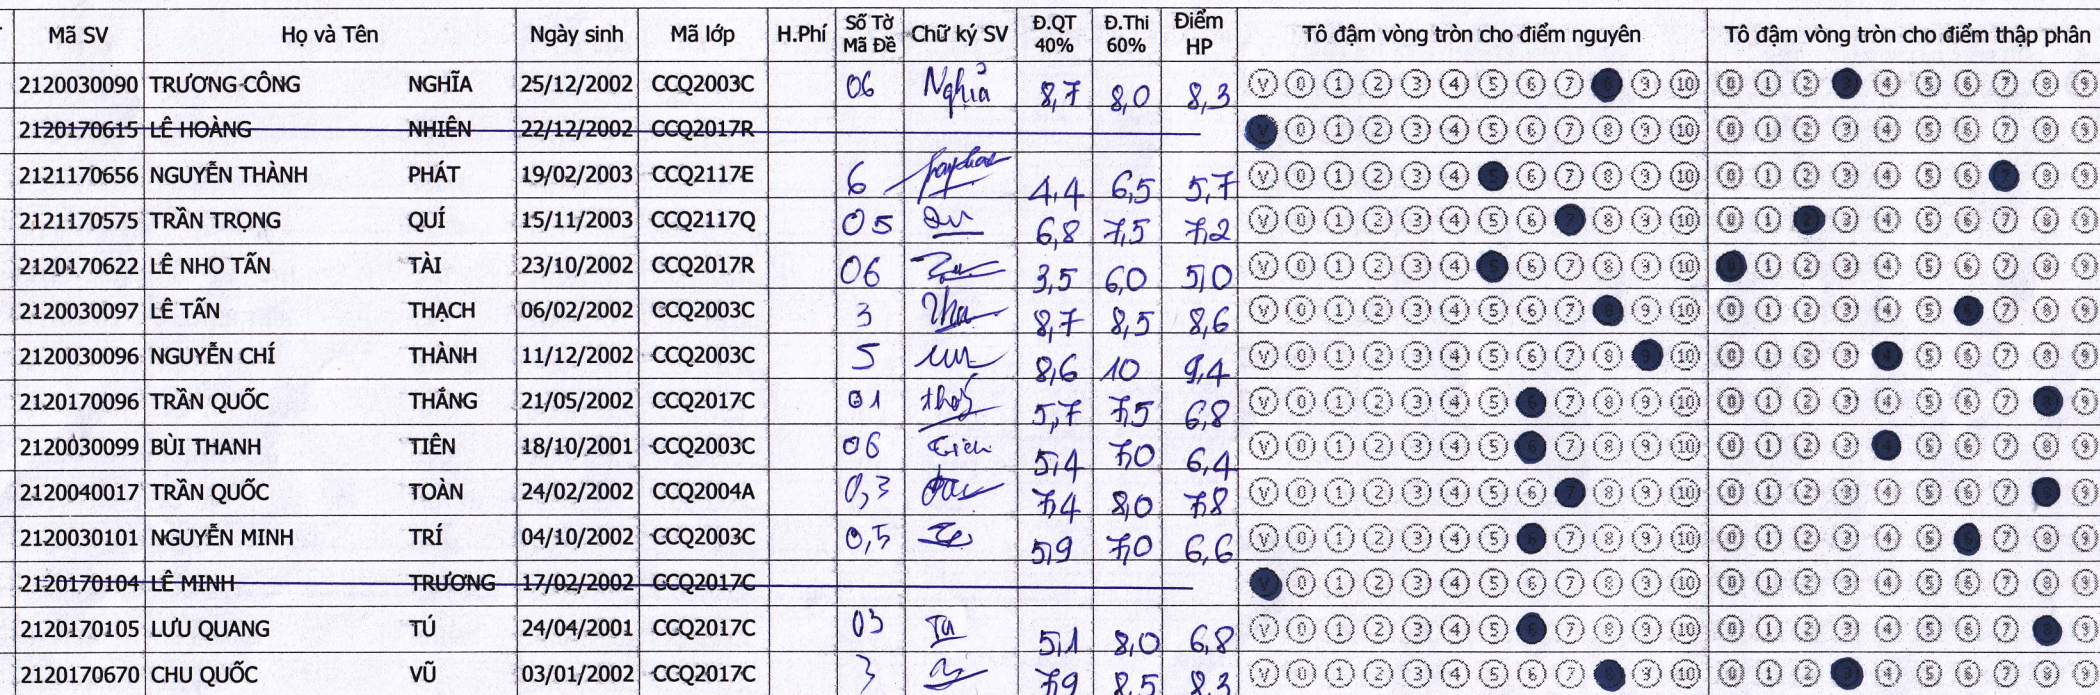 Mã SV Họ và Tên Ngày sinh Mã lớp H.Phí Số Tờ Mã Đề Chữ ký SV Đ.QT 40% Đ.Thi 60% Điểm HP Tô đậm vòng tròn cho điểm nguyên Tô đậm vòng tròn cho điểm thập phân
2120030090 TRƯƠNG CÔNG NGHĨA 25/12/2002 CCQ2003C 06 Nghĩa 8,7 8,0 8,3 V 0 1 2 3 4 5 6 7 8 9 10 0 1 2 3 4 5 6 7 8 9
2120170615 LÊ HOÀNG NHIÊN 22/12/2002 CCQ2017R V 0 1 2 3 4 5 6 7 8 9 10 0 1 2 3 4 5 6 7 8 9
2121170656 NGUYỄN THÀNH PHÁT 19/02/2003 CCQ2117E 6 4,4 6,5 5,7 V 0 1 2 3 4 5 6 7 8 9 10 0 1 2 3 4 5 6 7 8 9
2121170575 TRẦN TRỌNG QUÍ 15/11/2003 CCQ2117Q 05 6,8 7,5 7,2 V 0 1 2 3 4 5 6 7 8 9 10 0 1 2 3 4 5 6 7 8 9
2120170622 LÊ NHO TẤN TÀI 23/10/2002 CCQ2017R 06 3,5 6,0 5,0 V 0 1 2 3 4 5 6 7 8 9 10 0 1 2 3 4 5 6 7 8 9
2120030097 LÊ TẤN THẠCH 06/02/2002 CCQ2003C 3 8,7 8,5 8,6 V 0 1 2 3 4 5 6 7 8 9 10 0 1 2 3 4 5 6 7 8 9
2120030096 NGUYỄN CHÍ THÀNH 11/12/2002 CCQ2003C 5 8,6 10 9,4 V 0 1 2 3 4 5 6 7 8 9 10 0 1 2 3 4 5 6 7 8 9
2120170096 TRẦN QUỐC THẮNG 21/05/2002 CCQ2017C 01 5,7 7,5 6,8 V 0 1 2 3 4 5 6 7 8 9 10 0 1 2 3 4 5 6 7 8 9
2120030099 BÙI THANH TIÊN 18/10/2001 CCQ2003C 06 Tiên 5,4 7,0 6,4 V 0 1 2 3 4 5 6 7 8 9 10 0 1 2 3 4 5 6 7 8 9
2120040017 TRẦN QUỐC TOÀN 24/02/2002 CCQ2004A 0,3 7,4 8,0 7,8 V 0 1 2 3 4 5 6 7 8 9 10 0 1 2 3 4 5 6 7 8 9
2120030101 NGUYỄN MINH TRÍ 04/10/2002 CCQ2003C 0,5 5,9 7,0 6,6 V 0 1 2 3 4 5 6 7 8 9 10 0 1 2 3 4 5 6 7 8 9
2120170104 LÊ MINH TRƯƠNG 17/02/2002 CCQ2017C V 0 1 2 3 4 5 6 7 8 9 10 0 1 2 3 4 5 6 7 8 9
2120170105 LƯU QUANG TÚ 24/04/2001 CCQ2017C 03 Tú 5,1 8,0 6,8 V 0 1 2 3 4 5 6 7 8 9 10 0 1 2 3 4 5 6 7 8 9
2120170670 CHU QUỐC VŨ 03/01/2002 CCQ2017C 3 7,9 8,5 8,3 V 0 1 2 3 4 5 6 7 8 9 10 0 1 2 3 4 5 6 7 8 9